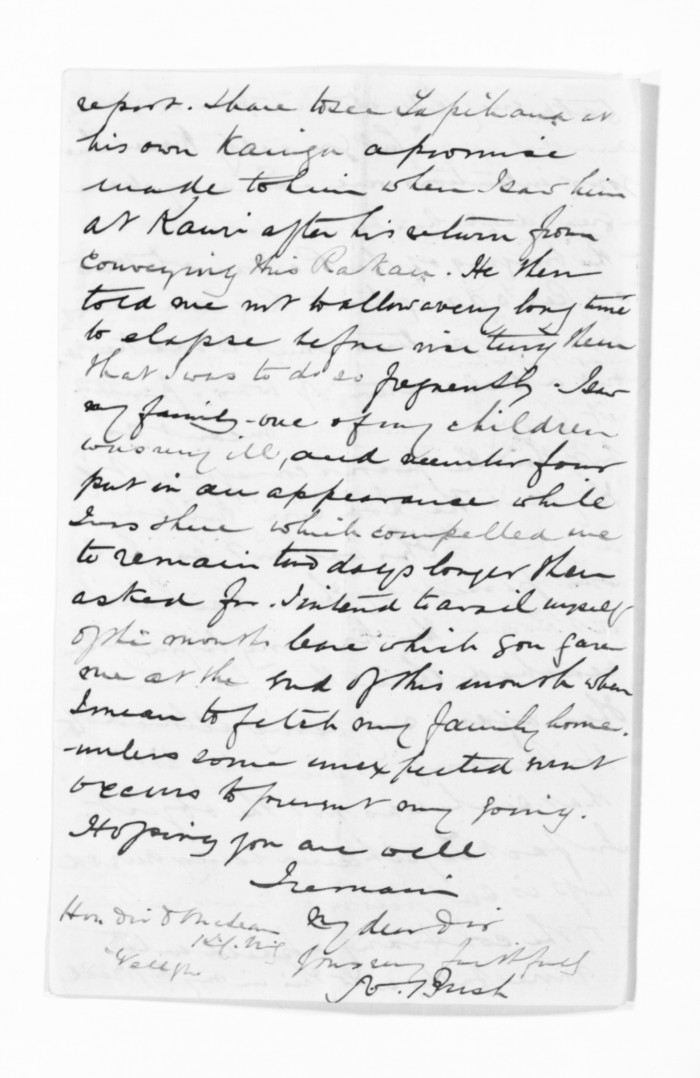 report. I have to see Tapihana at
his own Kainga a promise
made to him when I saw him
at Kawhia after his return from
Conveying this Rakau. He then
told me not to allow a very long time
to elapse before visiting them
that I was to do so frequently. I saw
my family - one of my children
was very ill, and number four
put in an appearance while
I was there which compelled me
to remain two days longer then
asked for. I intend to avail myself
of the month leave which you gave
me at the end of this month when
I mean to fetch my family home.
unless some unexpected event
occurs to prevent my going.
Hoping you are well
I remain
My dear Sir
Yours very faithfully
Bush
Hon Sir D McLean